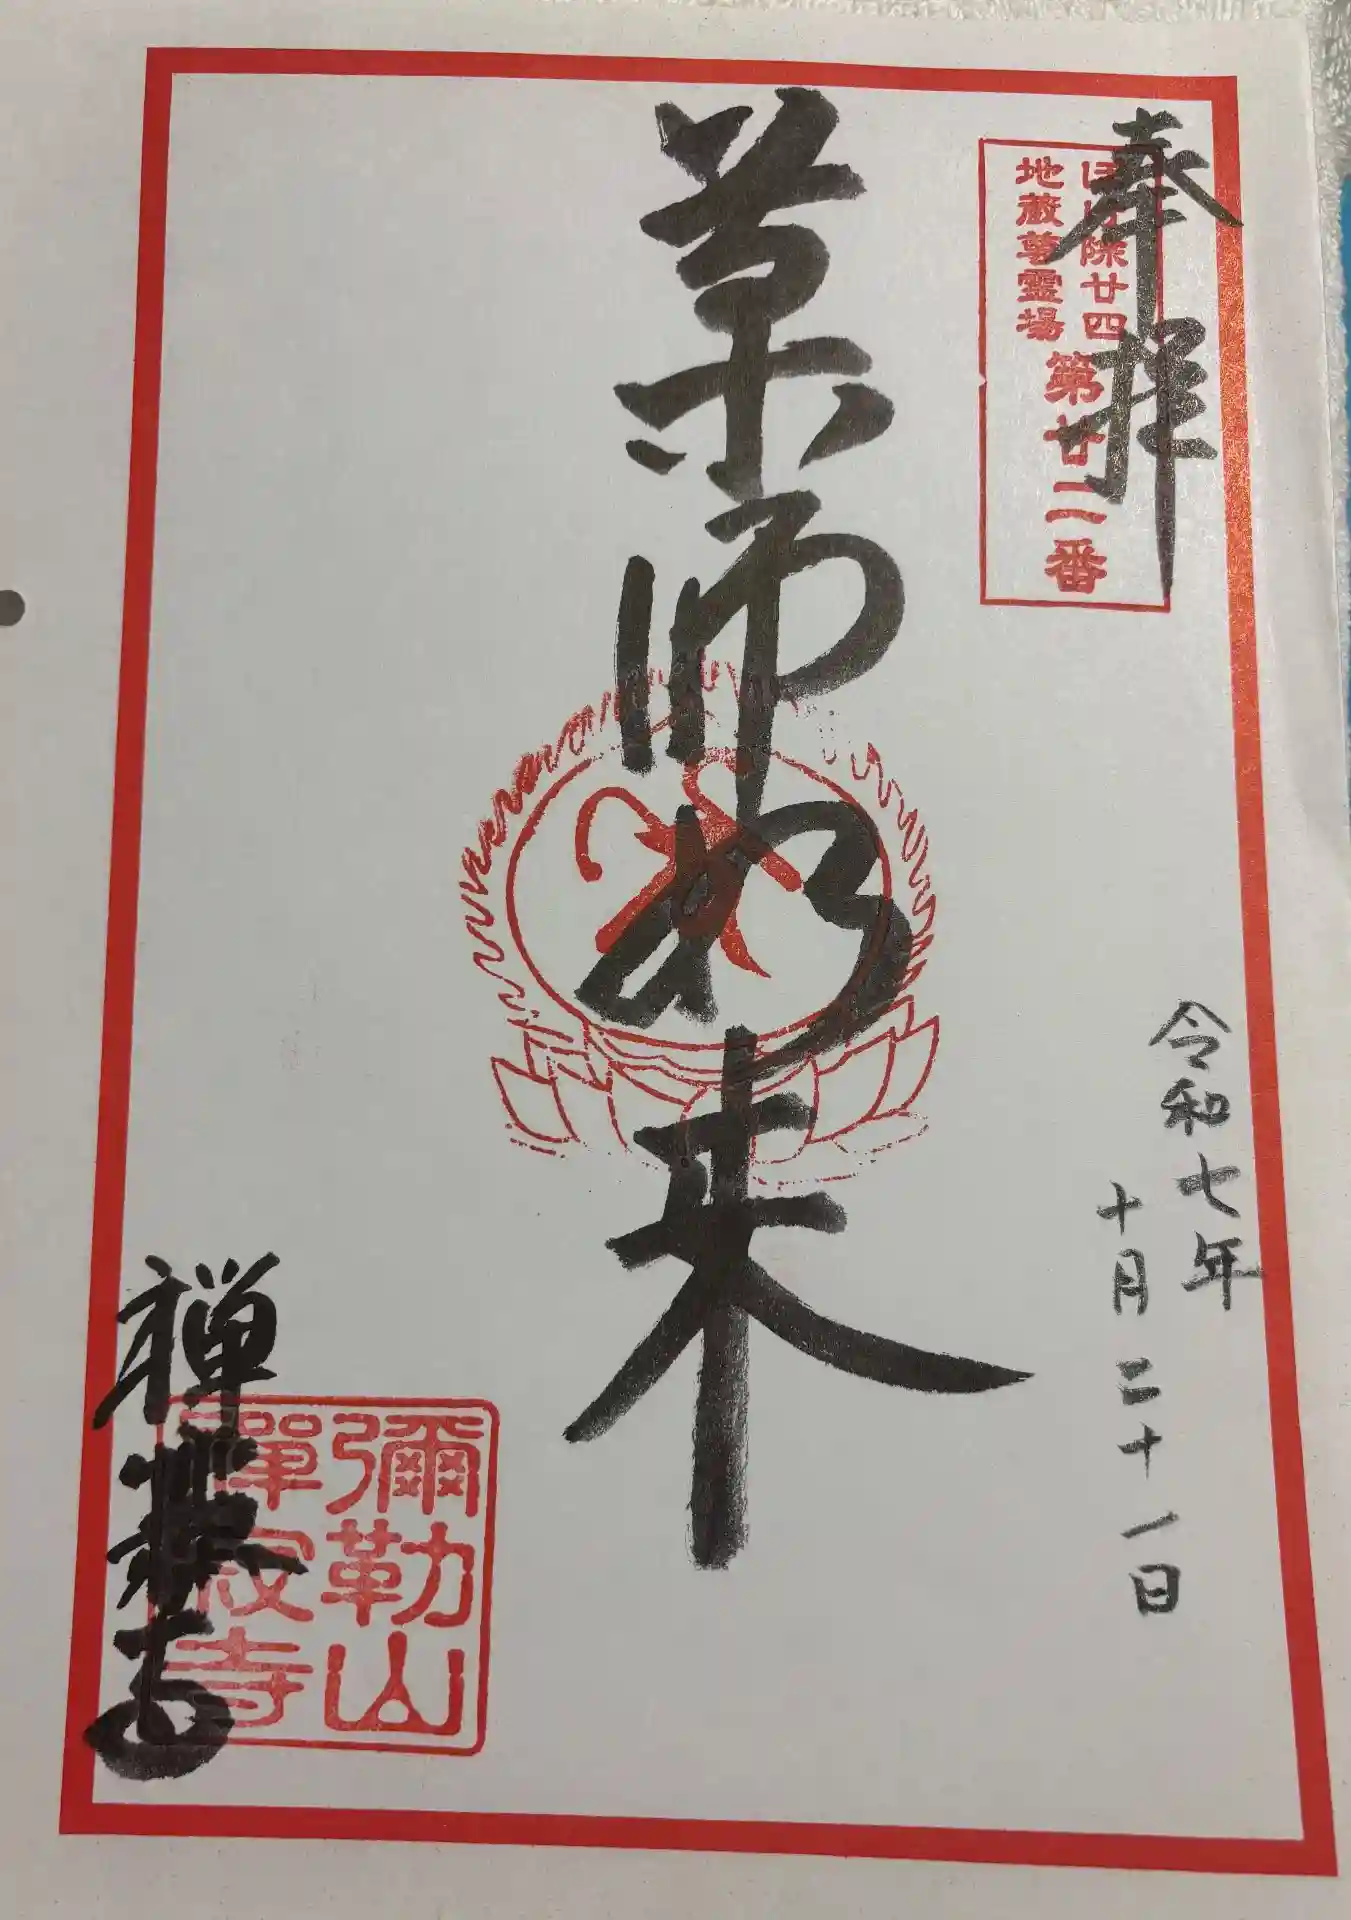 奉拝
ぼけ除廿四
地蔵尊霊場
第廿二番
薬師如来
令和七年
十月二十一日
禅蔵寺
彌勒山